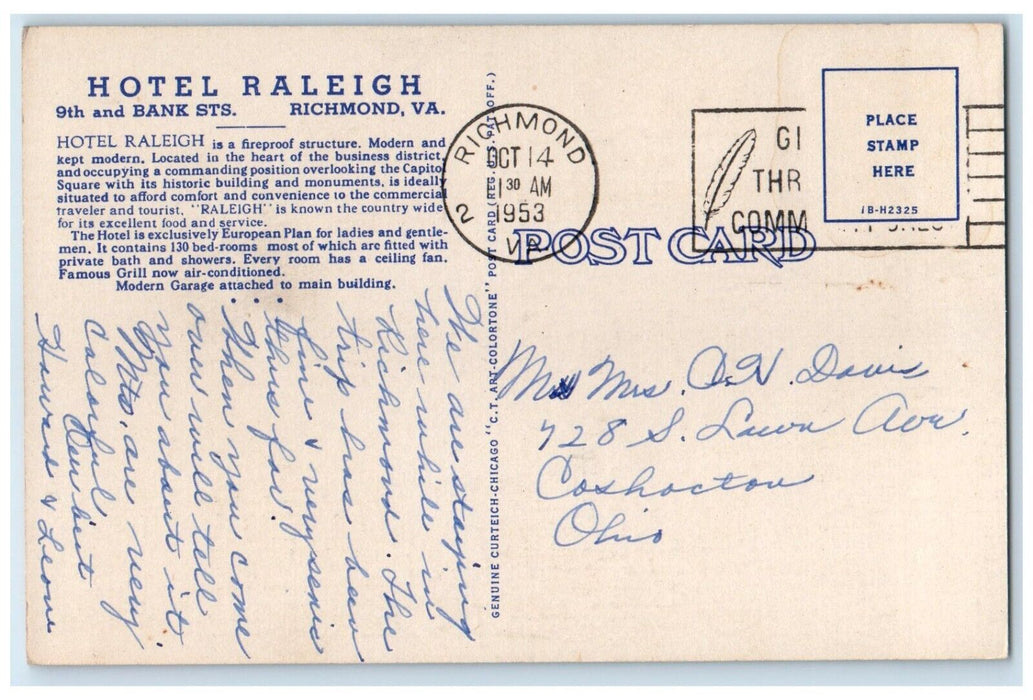 HOTEL RALEIGH
9th and BANK STS. RICHMOND, VA.
HOTEL RALEIGH is a fireproof structure. Modern and
kept modern. Located in the heart of the business district,
and occupying a commanding position overlooking the Capitol
Square with its historic building and monuments, is ideally
situated to afford comfort and convenience to the commercial
traveler and tourist. "RALEIGH" is known the country wide
for its excellent food and service.
The Hotel is exclusively European Plan for ladies and gentle-
men. It contains 130 bed-rooms most of which are fitted with
private bath and showers. Every room has a ceiling fan.
Famous Grill now air-conditioned.
Modern Garage attached to main building.
We are staying
here while in
Richmond. The
trip has been
fine & very scenic
thus far.
When you come
over will tell
you about it.
Mts. are very
colorful
Our best
Howard & Leone
GENUINE CURTEICH-CHICAGO "C.T. ART-COLORTONE" POST CARD (REG. U.S. PAT. OFF.)
RICHMOND
2
OCT 14
1 30 AM
1953
VA
GI
THR
COMM
PLACE
STAMP
HERE
1B-H2325
POST CARD
Mrs. O. H. Davis
728 S. Lawn Ave.
Coshocton
Ohio